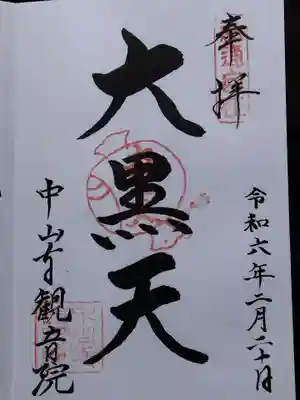 奉拝
令和六年二月二十日
大黒天
中山寺観音院